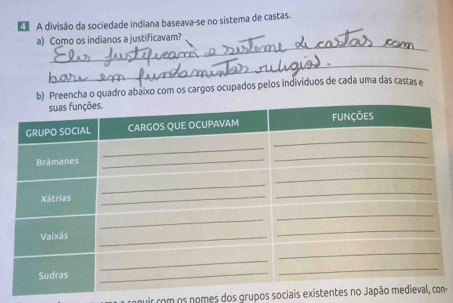 4 A divisão da sociedade indiana baseava-se no sistema de castas.
a) Como os indianos a justificavam?
Eles justificam o sistema de castas com
base em fundamentos religio.
b) Preencha o quadro abaixo com os cargos ocupados pelos indivíduos de cada uma das castas e
suas funções.
GRUPO SOCIAL CARGOS QUE OCUPAVAM FUNÇÕES
Brâmanes
Xátrias
Vaixás
Sudras
com os nomes dos grupos sociais existentes no Japão medieval, con-